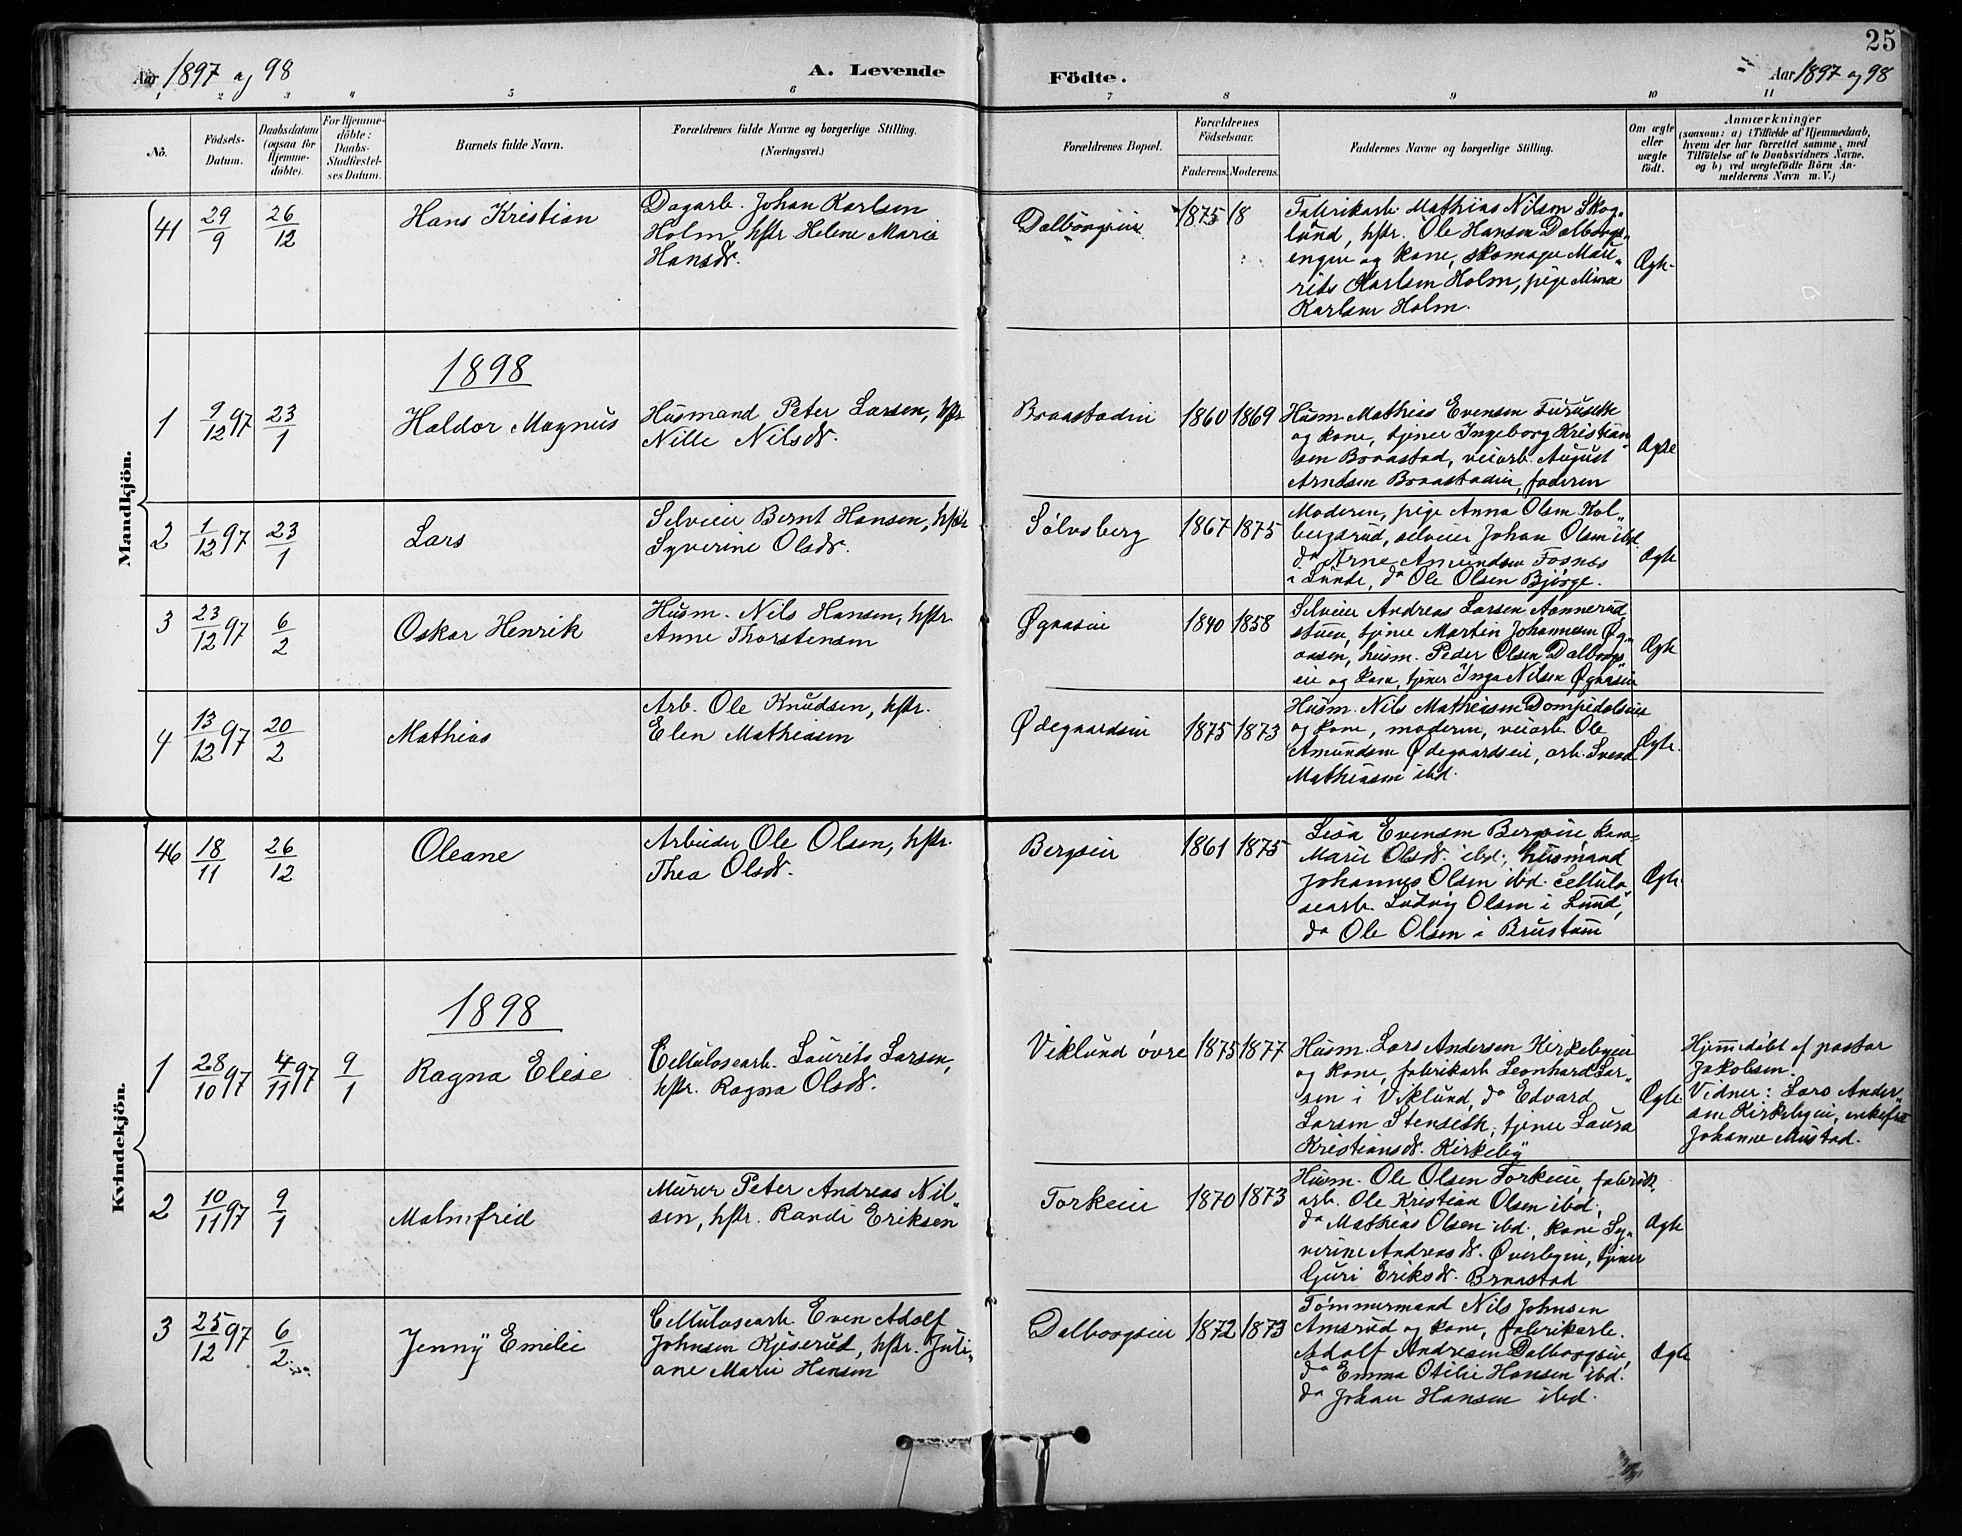 25
Aar 1897 og 98
A. Levende
Födte.
Aar 1897 og 98
1 2 3 4 5 6 7 8 9 10 11
No.
Födsels-
Datum.
Daabsdatum
(ogsaa for
Hjemme-
døbte).
For Hjemme-
döbte:
Daabs-
Stadfæstel-
ses Datum.
Barnets fulde Navn.
Forældrenes fulde Navne og borgerlige Stilling.
(Næringsvei.)
Forældrenes Bopæl.
Forældrenes
Födselsaar.
Faderens. Moderens.
Faddernes Navne og borgerlige Stilling.
Om ægte
eller
uægte
födt.
Anmærkninger
(saasom: a) i Tilfælde af Hjemmedaab,
hvem der har forrettet samme, med
Tilföielse af to Daabsvidners Navne,
og b) ved uægtefödte Börn An-
melderens Navn m. V.)
Mandkjön.
41 29/9 26/12 Hans Kristian
Dagarb. Johan Karlsen
Holm, hstr. Helene Marie
Hansdr.
Dalborgeie 1875 18
Fabrikarb. Mathias Nilsen Skog„
lund, hstr. Ole Hansen Dalborgs„
engen og kone, skomager Mau„
rits Karlsen Holm, pige Mina
Karlsen Holm.
Ægte
1898
1 9/12 97 23/1 Haldor Magnus
Husmand Peter Larsen, hstr.
Nille Nilsdr.
Braastadeie 1860 1869
Husm. Mathias Evensen Furusette
og kone, tjener Ingeborg Kristian„
sen Braastad, veiarb. August
Arnesen Braastadeie, faderen
Ægte
2 1/12 97 23/1 Lars
Selveier Bernt Hansen, hstr.
Syverine Olsdr.
Sölvsberg 1867 1875
Moderen, pige Anna Olsen Kol„
bergsrud, selveier Johan Olsen ibd.
do Arne Amundsen Fosnes
i Lunde, do Ole Olsen Bjørge.
Ægte
3 23/12 97 6/2 Oskar Henrik
Husm. Nils Hansen, hstr.
Anne Thorstensen
Øgaaseie 1840 1858
Selveier Andreas Larsen Aannerud
stuen, tjener Martin Johannesen Øg„
aasen, husm. Peder Olsen Dalborgs
eie og kone, tjener Inga Nilsen Øgaaseie
Ægte
4 13/12 97 20/2 Mathias
Arb. Ole Knudsen, hstr.
Elen Mathiasen
Ødegaardseie 1875 1873
Husm. Nils Mathiasen Dompidalseie
og kone, moderen, veiarb. Ole
Amundsen Ødegaardseie, arb. Svend
Mathiasen ibd.
Ægte.
Kvindekjön.
46 18/11 26/12 Oleane
Arbeider Ole Olsen, hstr.
Thea Olsdr.
Bergseie 1861 1875
Lisa Evensen Bergseie, kone
Marie Olsdr. ibd., husmand
Johannes Olsen ibd. cellulo„
searb. Ludvig Olsen i Lund,
do Ole Olsen i Brustuen
Ægte
1898
1 28/10 97 4/11 97 9/1 Ragna Elise
Cellulosearb. Laurits Larsen,
hstr. Ragna Olsdr.
Viklund övre 1875 1877
Husm. Lars Andersen Kirkebyeie
og kone, fabrikarb. Leonhard Lar„
sen i Viklund, do Edvard
Larsen Stenseth, tjener Laura
Kristiansdr. Kirkeby
Ægte
Hjemmedöbt af pastor
Jakobsen.
Vidner: Lars Ander„
sen Kirkebyeie, enkefru
Johanne Mustad.
2 10/11 97 9/1 Malmfrid
Murer Peter Andreas Nil„
sen, hstr. Randi Eriksen
Torkeie 1870 1873
Husm. Ole Olsen Torkeie, fabrik„
arb. Ole Kristian Olsen ibd,
do Mathias Olsen ibd, kone Sy„
verine Andreasdr. Øverbyeie, tjener
Guri Eriksdr. Braastad
Ægte
3 25/12 97 6/2 Jenny Emilie
Cellulosearb. Even Adolf
Johnsen Kjeserud, hstr. Juli„
ane Marie Hansen
Dalborgseie 1872 1873
Tömmermand Nils Johnsen
Amsrud og kone, fabrikarb.
Adolf Andresen Dalborgseie,
do Emma Otilie Hansen ibd.
do Johan Hansen ibd.
Ægte